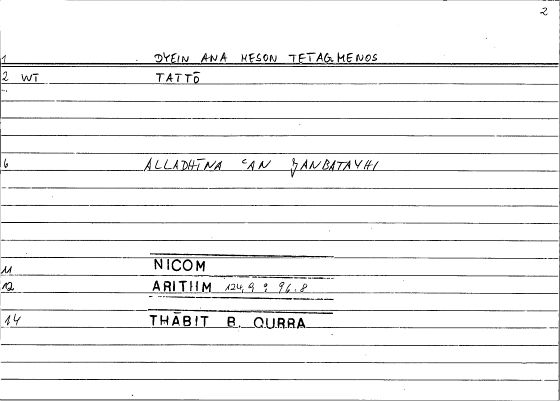 2
1 DYEIN ANA MESON TETAGMENOS
2 WT TATTŌ
6 ALLADHĪNA ʿAN ǦANBATAYHI
11 NICOM
12 ARITHM 124,9 : 96.8
14 THĀBIT B. QURRA